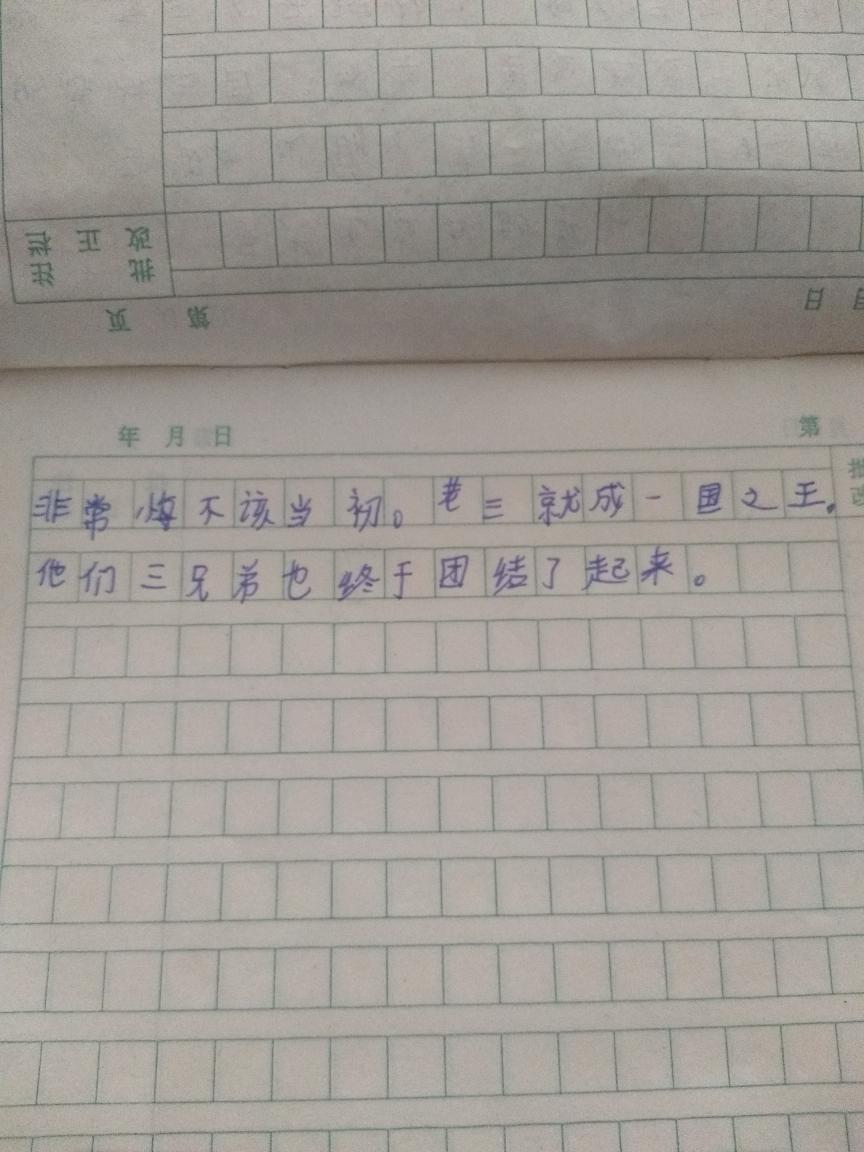 批改
订正
第 页
月 日
年 月 日 第
批改
非常悔不该当初。老三就成一国之王。
他们三兄弟也终于团结了起来。